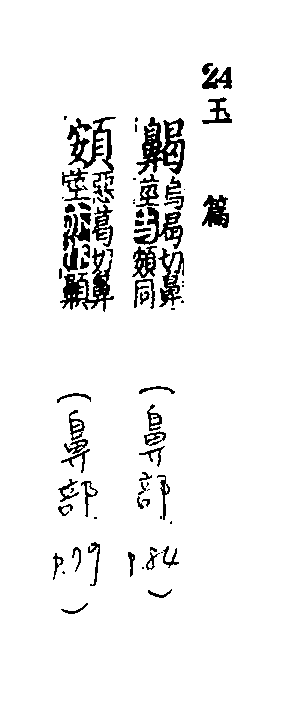 24 玉篇
齃 烏曷切鼻莖与頞同 (鼻部 p.84)
頞 惡葛切鼻莖 (鼻部 p.79)